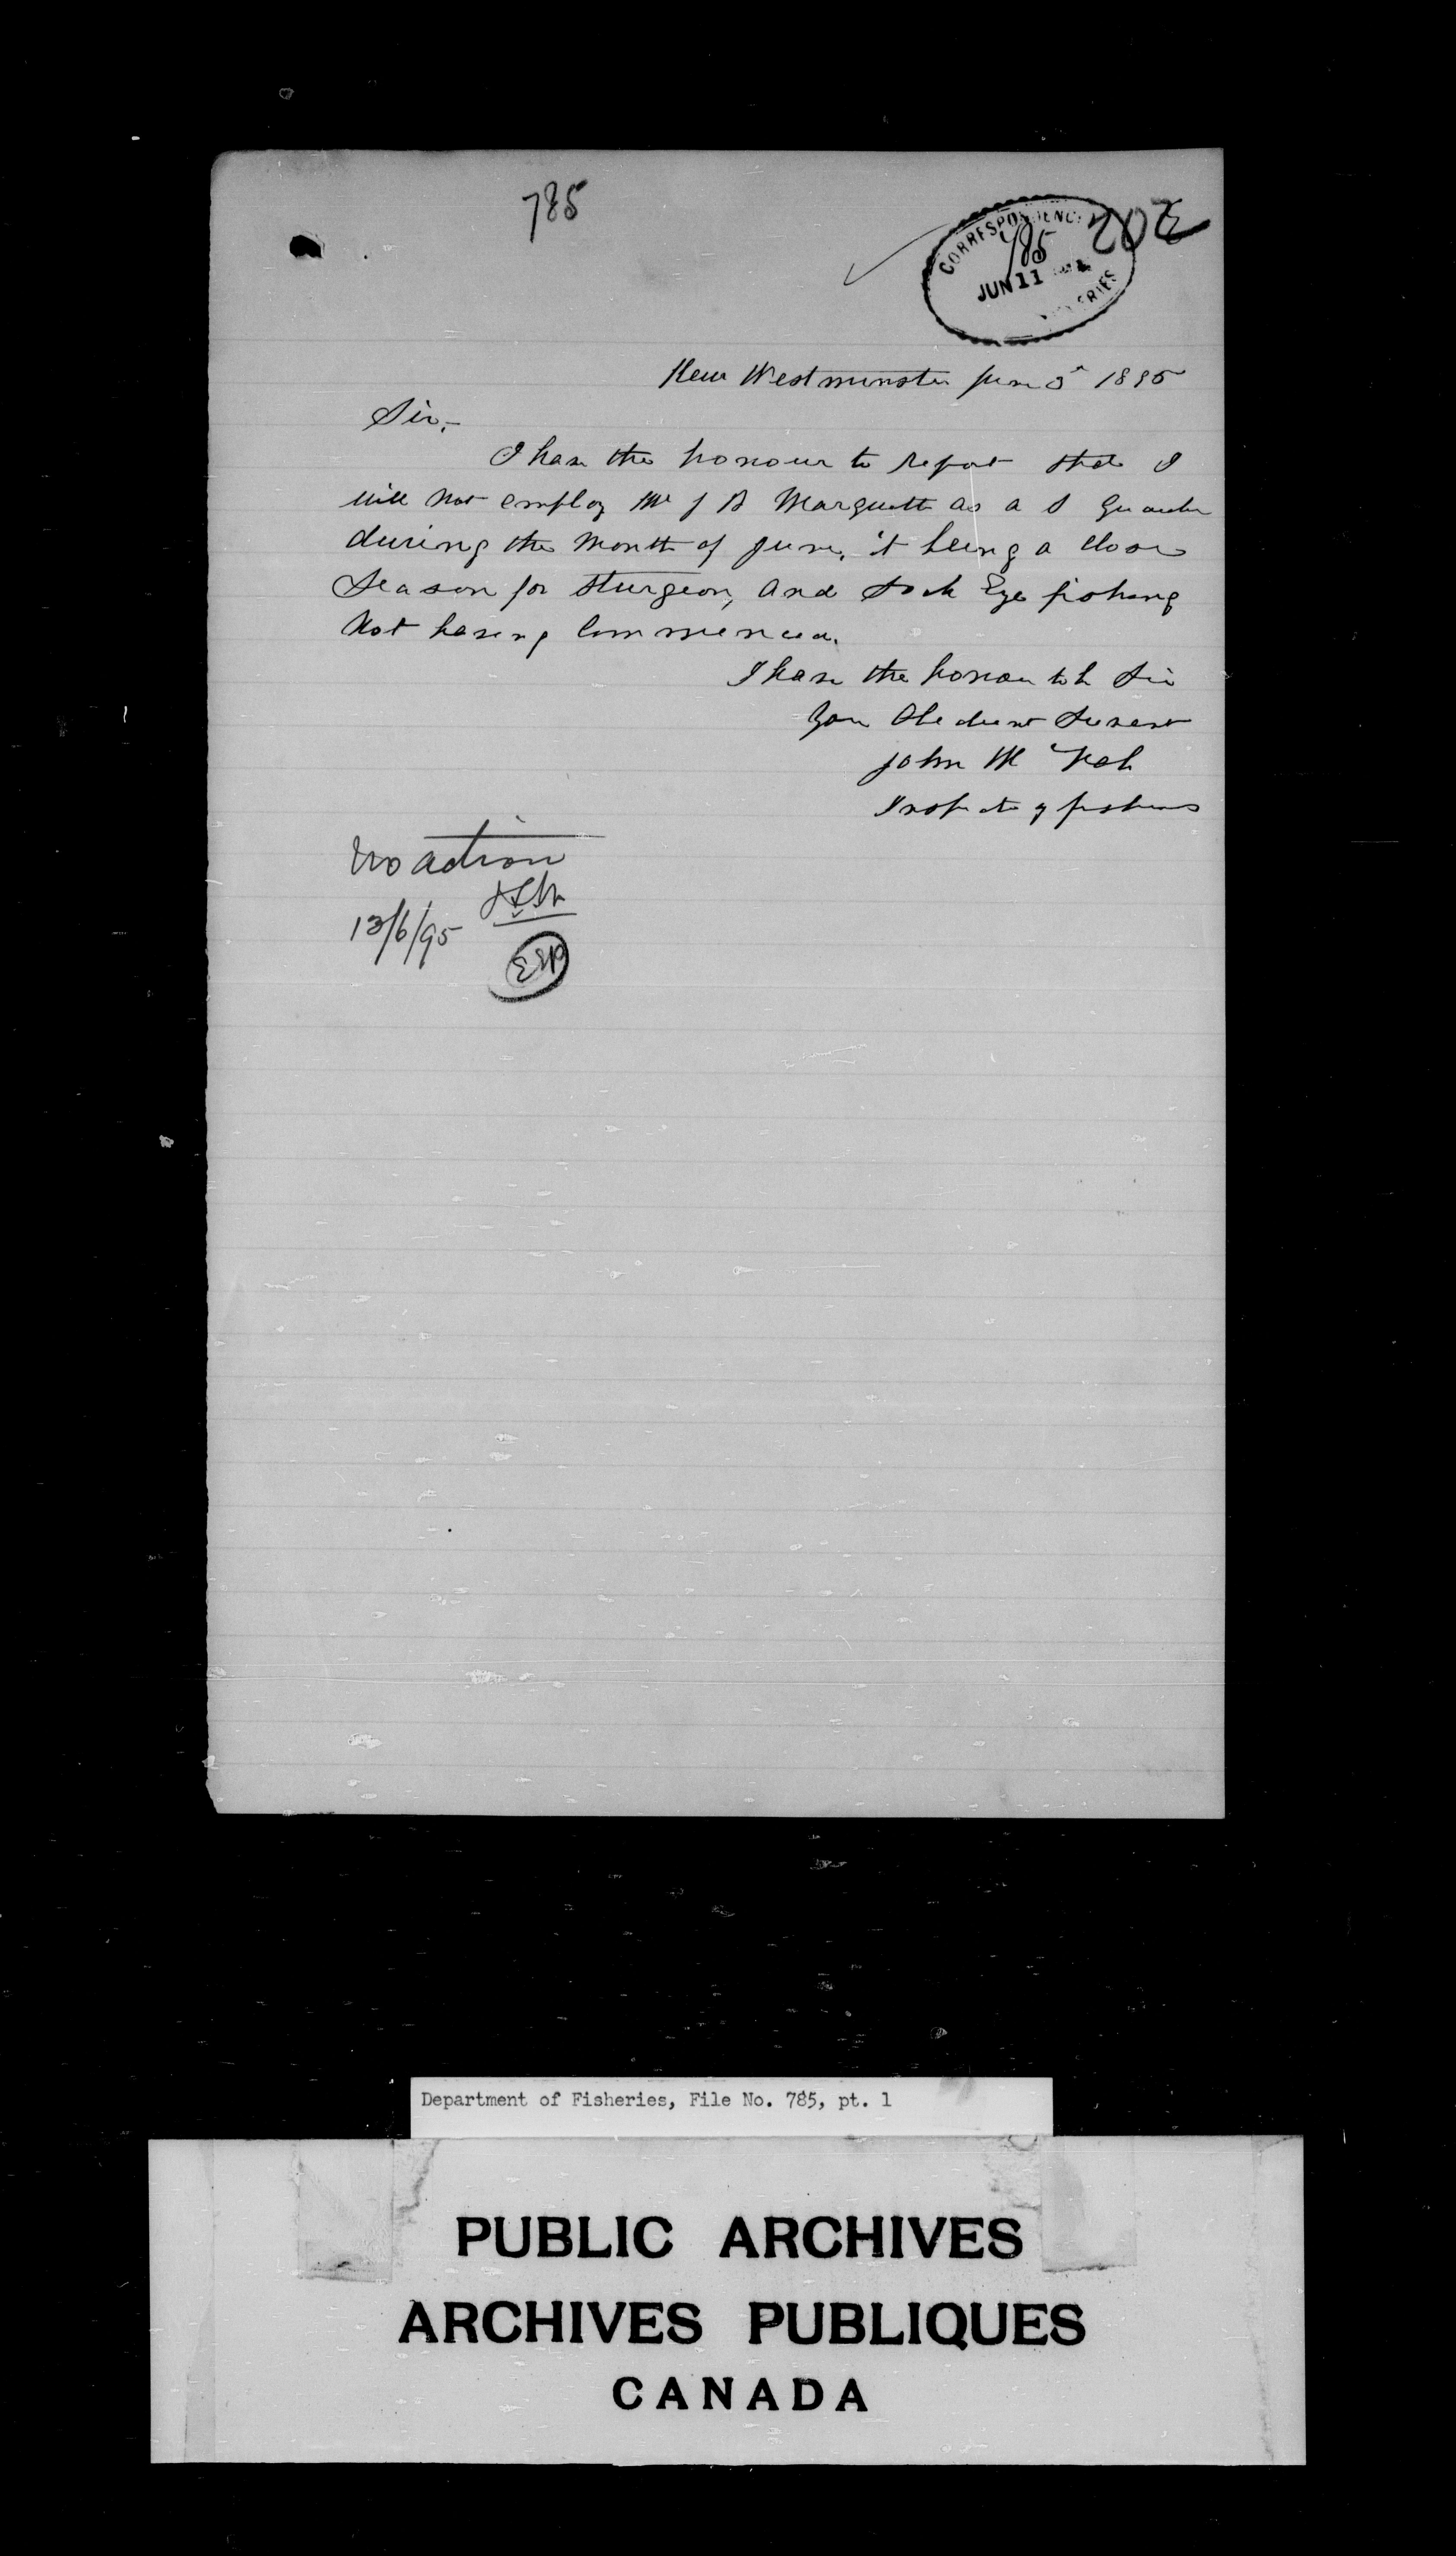 785
202
CORRESPONDENCE
785
JUN 11
FISHERIES
New Westminster June 5th 1895
Sir,-
I have the honour to report that I
will not employ Mr J B Marquette as a S Guardn
during the Month of June, it being a close
Season for Sturgeon, and Sock Eye fishing
Not having Commenced.
I have the honour to be Sir
Your Obedient Servant
John M
Inspector of fisheries
No action
13/6/95
Department of Fisheries, File No. 785, pt. 1
PUBLIC ARCHIVES
ARCHIVES PUBLIQUES
CANADA